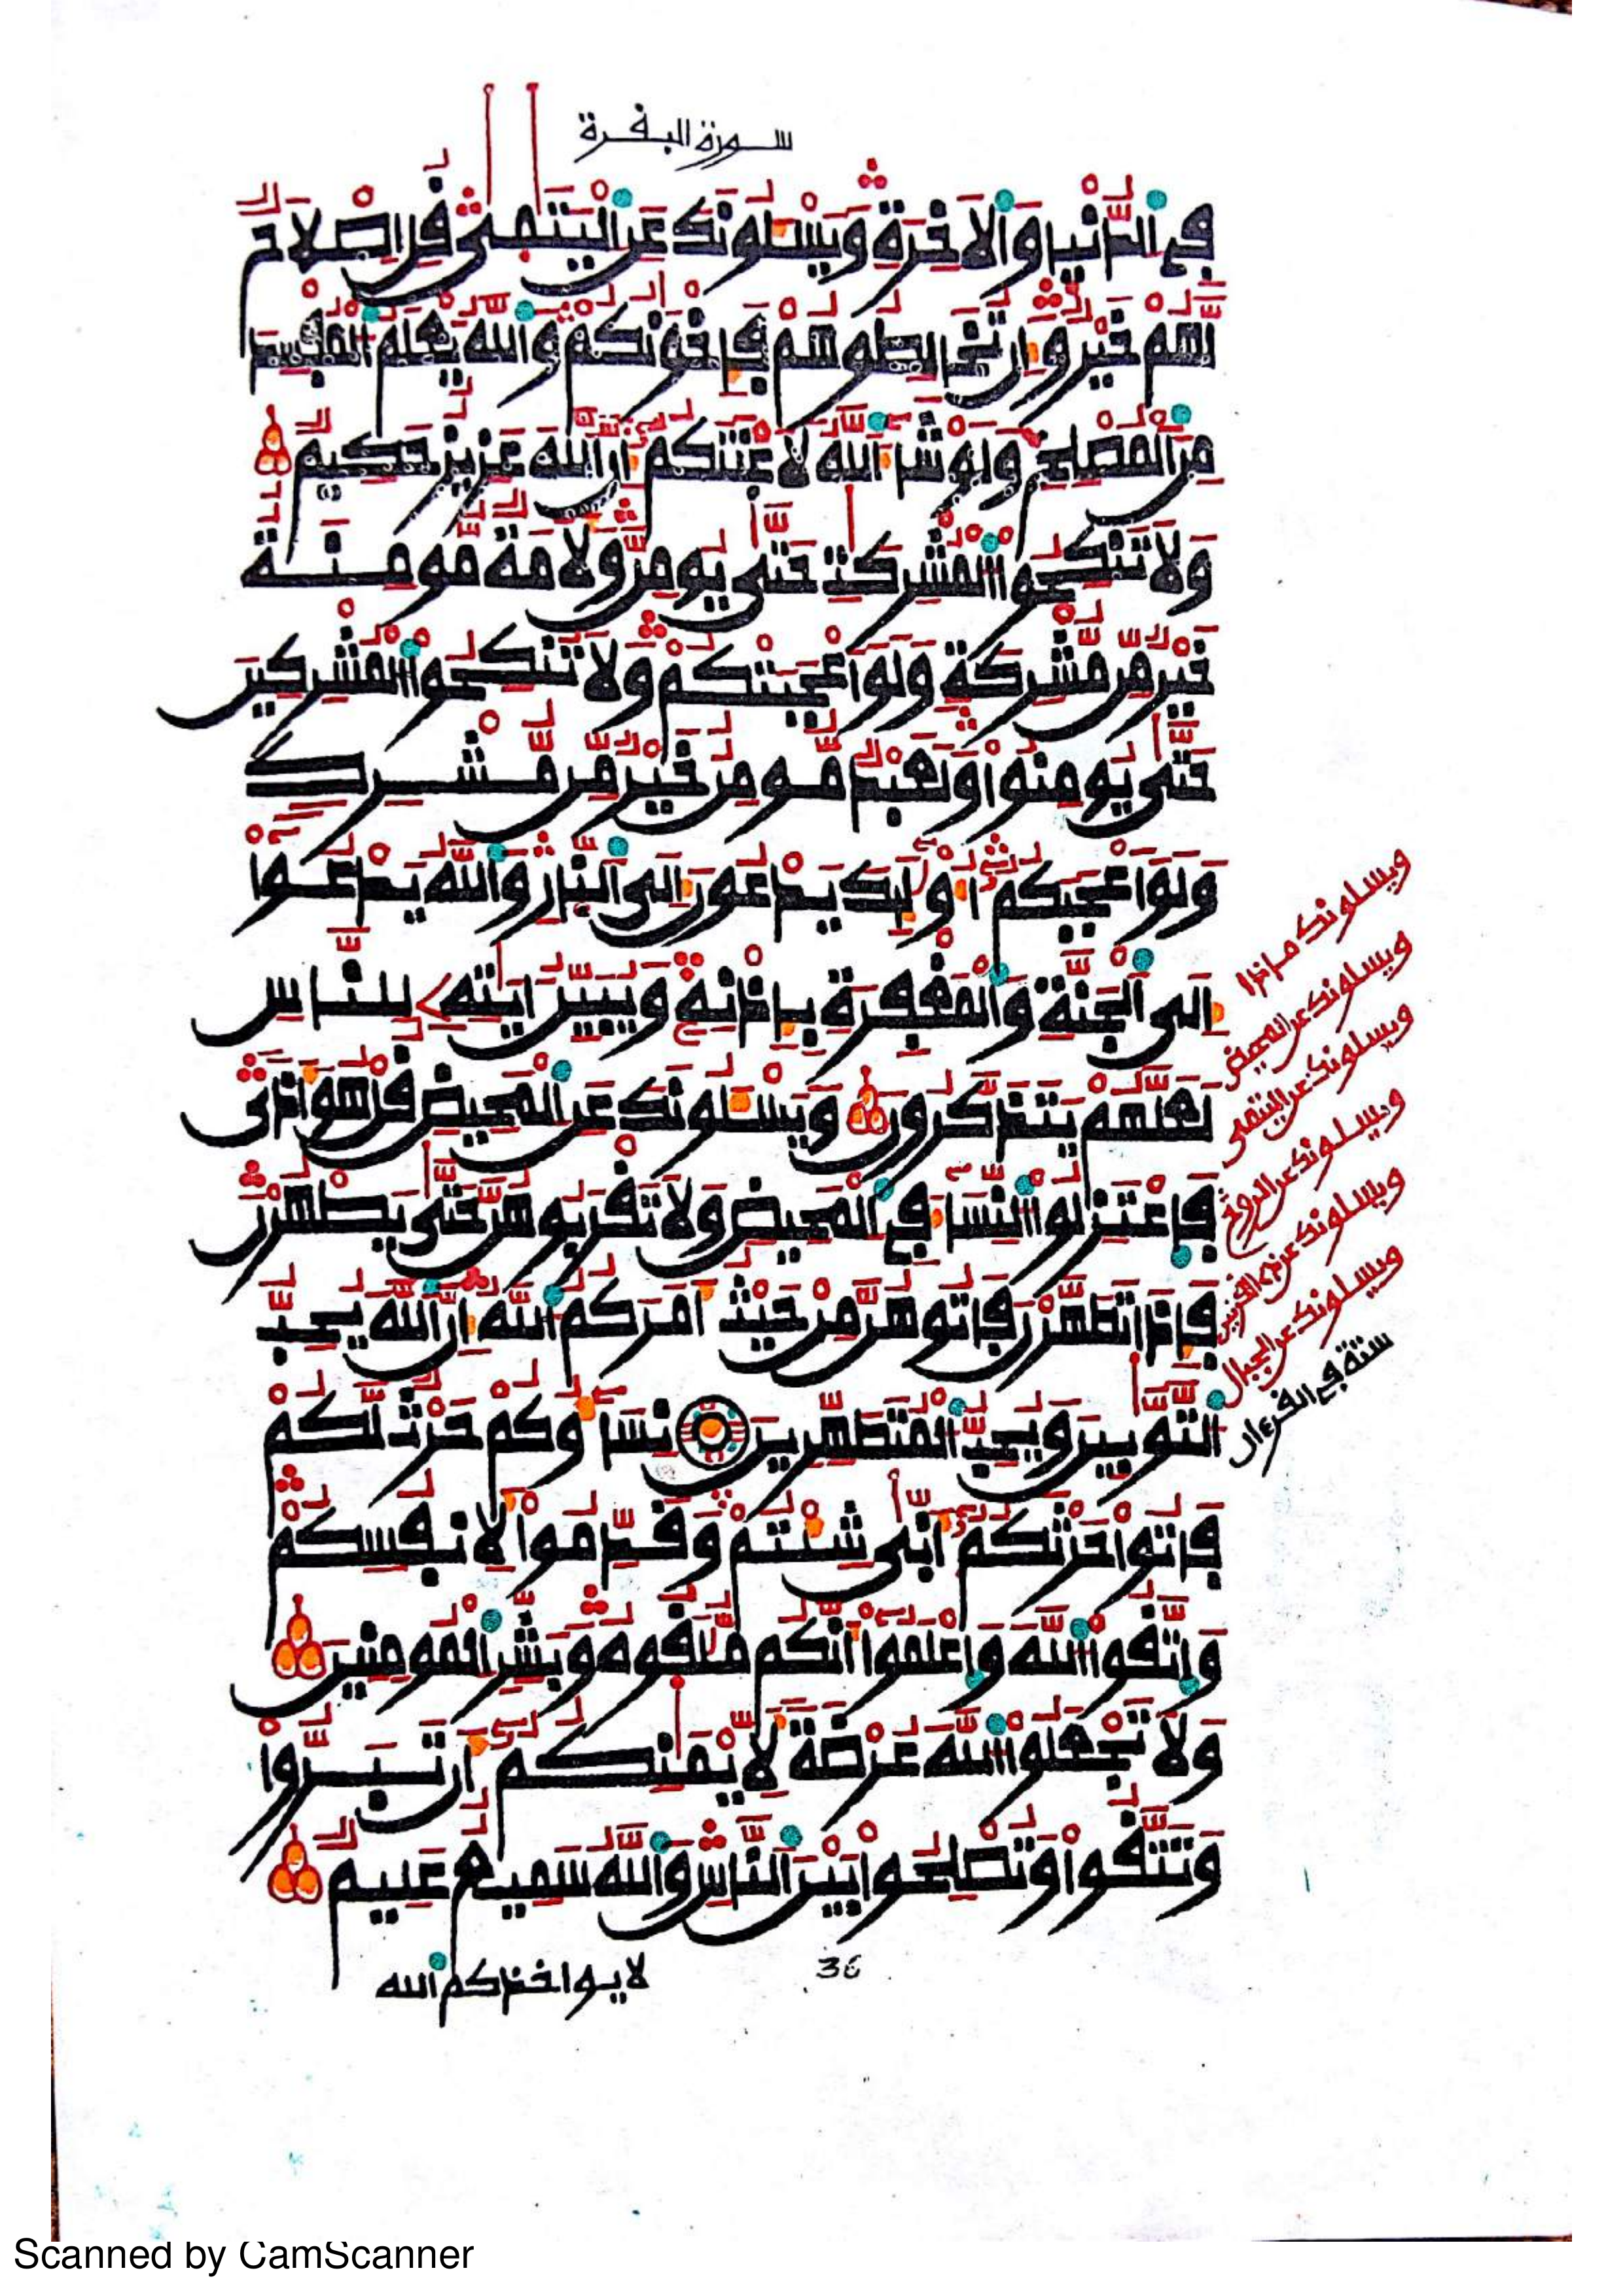 سورة البفرة
فِے اِ۬لدُّنْي۪ا وَالَاخِرَةِ وَيَسْـَٔلُونَكَ عَنِ اِ۬لْيَتَٰم۪ىٰ فُلِ اِصْلَٰحٞ
لَّهُمْ خَيْرٞ وَإِن تُخَالِطُوهُمْ فَإِخْوَٰنُكُمْ وَاللَّهُ يَعْلَمُ اُ۬لْمُفْسِدَ
مِنَ اَ۬لْمُصْلِحِ وَلَوْ شَآءَ اَ۬للَّهُ لَأَعْنَتَكُمُۥٓ إِنَّ اَ۬للَّهَ عَزِيزٌ حَكِيمٞ
وَلَا تَنكِحُوا۟ اُ۬لْمُشْرِكَٰتِ حَتَّىٰ يُومِنَّ وَلَأَمَةٞ مُّومِنَةٌ
خَيْرٞ مِّن مُّشْرِكَةٖ وَلَوَ اَعْجَبَتْكُمْ وَلَا تُنكِحُوا۟ اُ۬لْمُشْرِكِينَ
حَتَّىٰ يُومِنُوا۟ وَلَعَبْدٞ مُّومِنٌ خَيْرٞ مِّن مُّشْرِكٖ
وَلَوَ اَعْجَبَكُمُۥٓ أُو۟لَٰٓئِكَ يَدْعُونَ إِلَى اَ۬لنّ۪ارِ وَاللَّهُ يَدْعُوٓا۟
إِلَى اَ۬لْجَنَّةِ وَالْمَغْفِرَةِ بِإِذْنِهِۦ وَيُبَيِّنُ ءَايَٰتِهِۦ لِلنَّاسِ
لَعَلَّهُمْ يَتَذَكَّرُونَ وَيَسْـَٔلُونَكَ عَنِ اِ۬لْمَحِيضِ فُلْ هُوَ أَذىٗ
فَاعْتَزِلُوا۟ اُ۬لنِّسَآءَ فِے اِ۬لْمَحِيضِ وَلَا تَفْرَبُوهُنَّ حَتَّىٰ يَطْهُرْنَ
فَإِذَا تَطَهَّرْنَ فَاتُوهُنَّ مِنْ حَيْثُ أَمَرَكُمُ اُ۬للَّهُ إِنَّ اَ۬للَّهَ يُحِبُّ
اُ۬لتَّوَّٰبِينَ وَيُحِبُّ اُ۬لْمُتَطَهِّرِينَ نِسَآؤُكُمْ حَرْثٞ لَّكُمْ
فَاتُوا۟ حَرْثَكُمُۥٓ أَنّ۪ىٰ شِئْتُمْ وَفَدِّمُوا۟ لِأَنفُسِكُمْ
وَاتَّفُوا۟ اُ۬للَّهَ وَاعْلَمُوٓا۟ أَنَّكُم مُّلَٰفُوهُ وَبَشِّرِ اِ۬لْمُومِنِينَ
وَلَا تَجْعَلُوا۟ اُ۬للَّهَ عُرْضَةٗ لِّأَيْمَٰنِكُمُۥٓ أَن تَبَرُّوا۟
وَتَتَّفُوا۟ وَتُصْلِحُوا۟ بَيْنَ اَ۬لنَّاسِ وَاللَّهُ سَمِيعٌ عَلِيمٞ
لا يواخذكم الله
36
ويسلونك ماذا
ويسلونك عن المحيض
ويسلونك عن اليتمى
ويسلونك عن الروح
ويسلونك عن ذى القرنين
ويسلونك عن الجبال
ستة في القرءان
Scanned by CamScanner